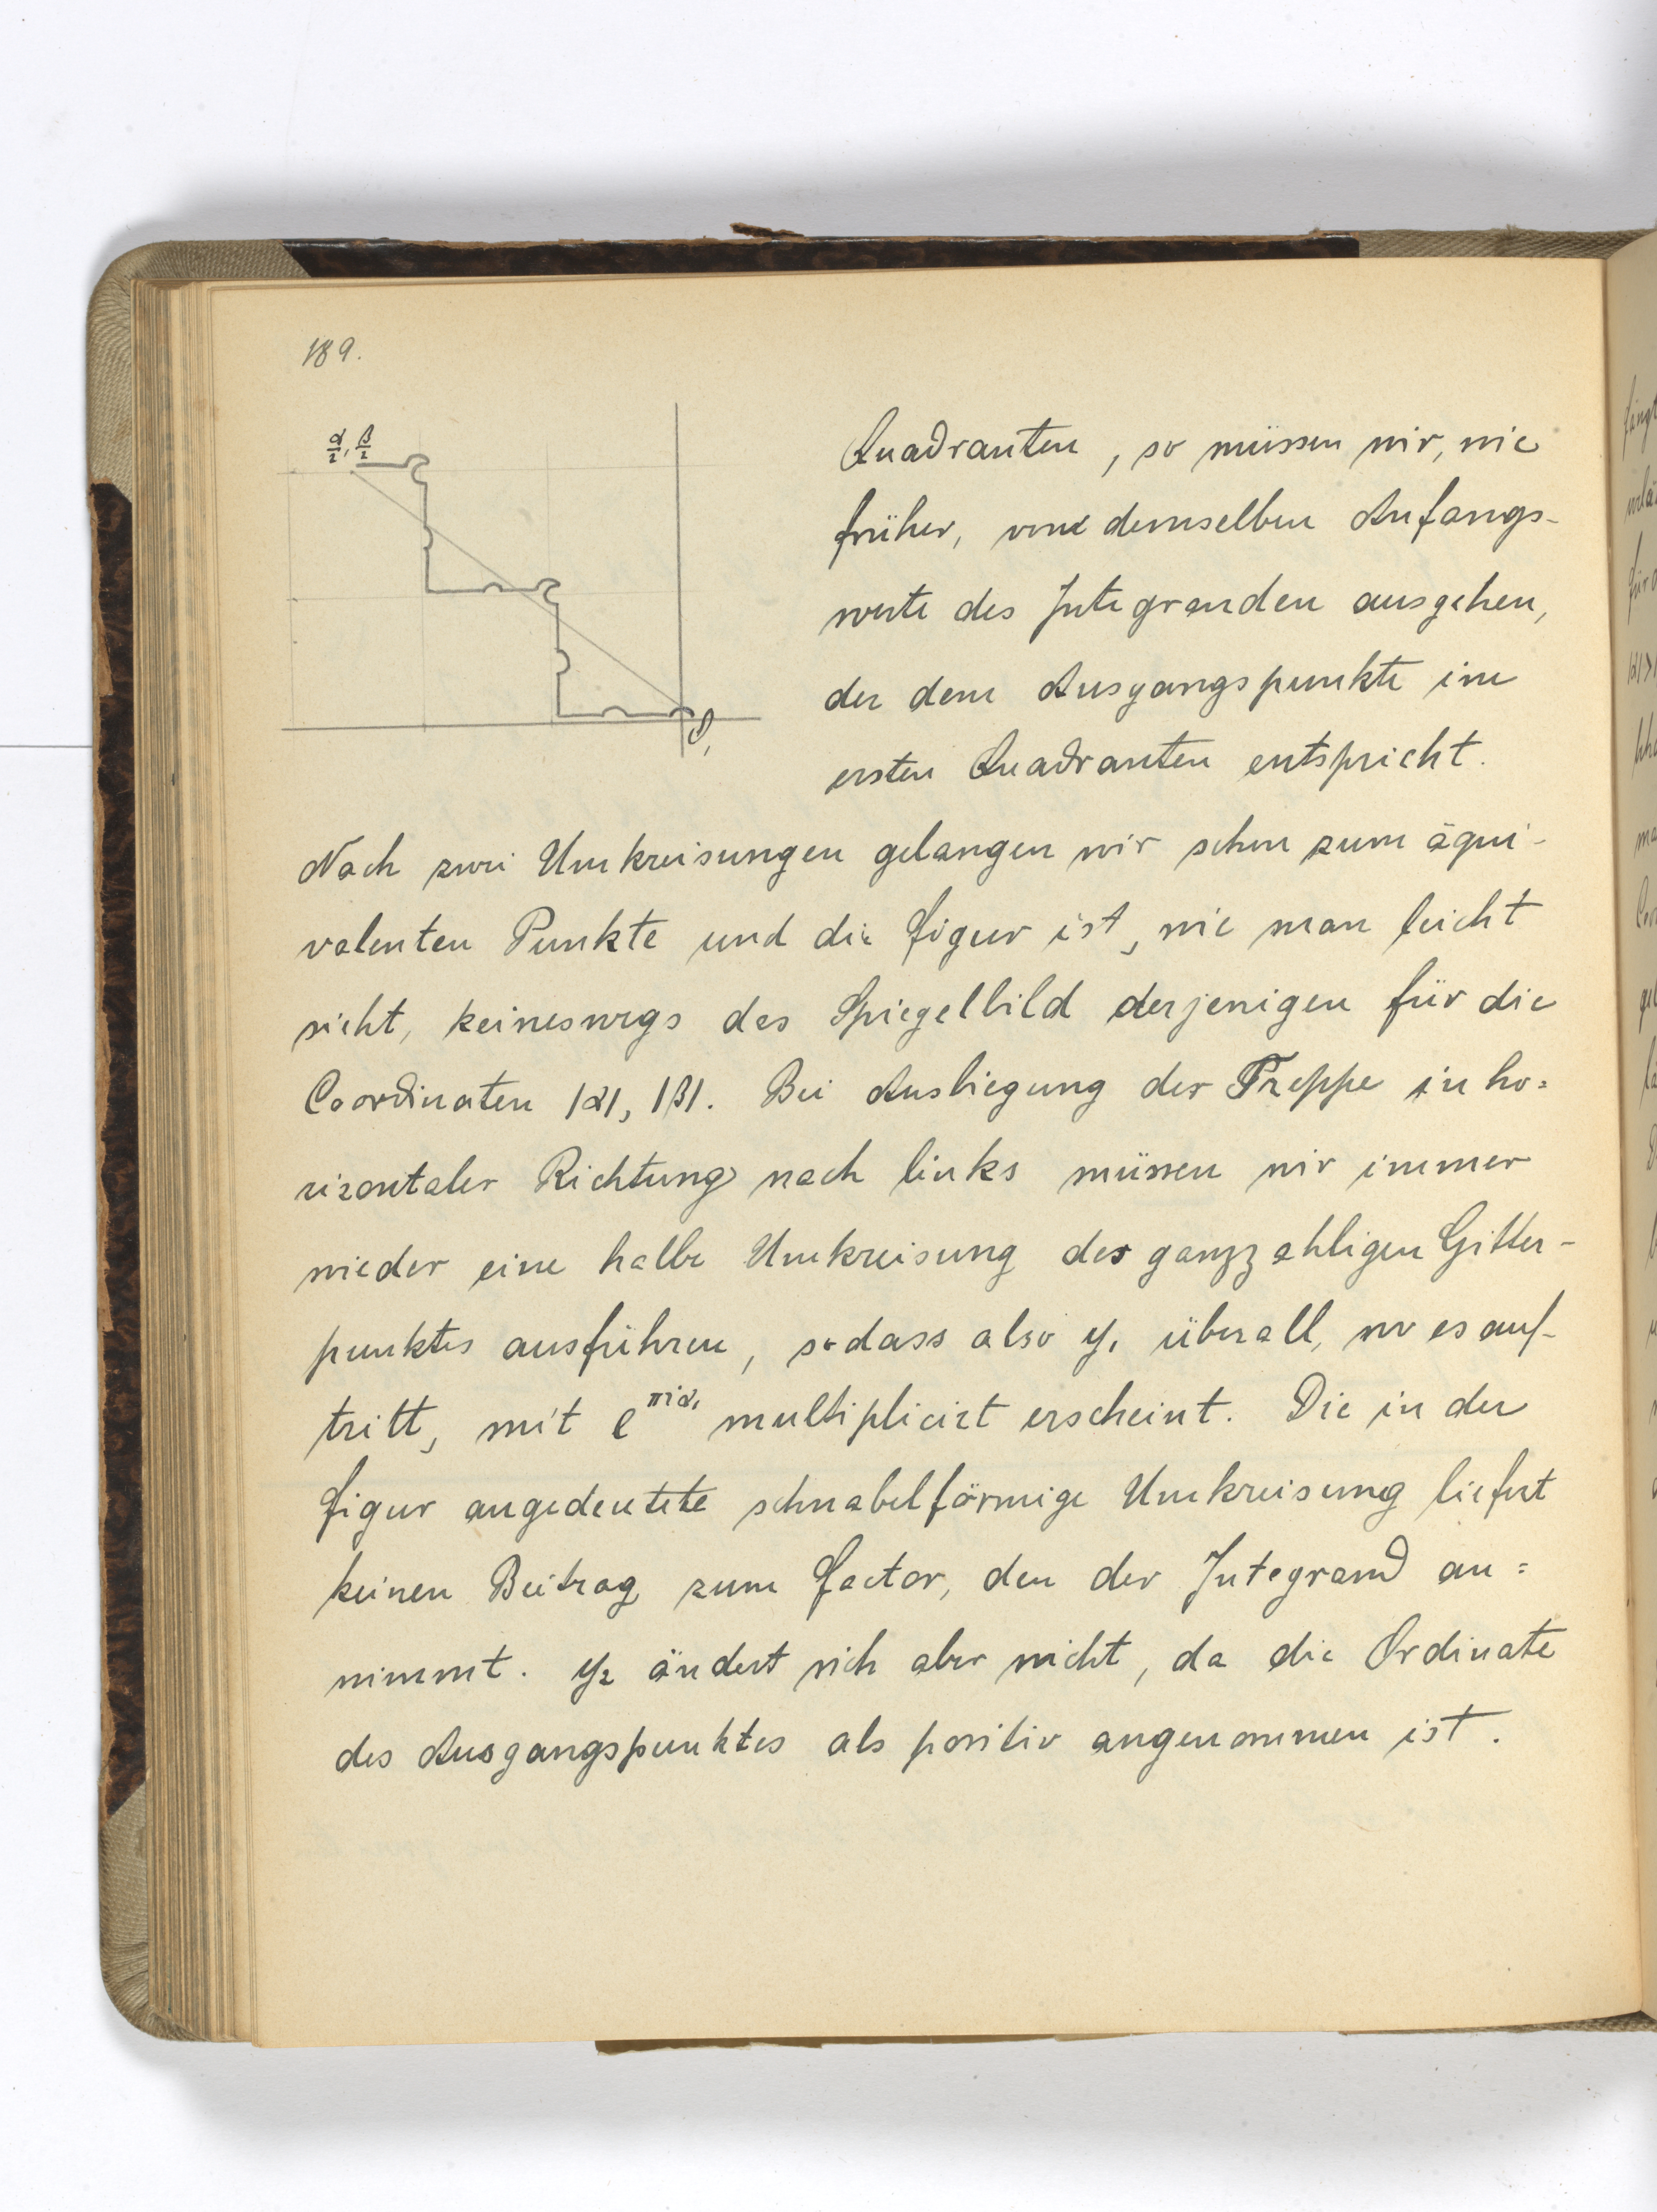 189.
α/2, β/2
O,
Quadranten, so müssen wir, wie
früher, vom demselben Anfangs-
werte des Integranden ausgehen,
der dem Ausgangspunkte im
ersten Quadranten entspricht.
Nach zwei Umkreisungen gelangen wir schon zum äqui-
valenten Punkte und die Figur ist, wie man leicht
sieht, keineswegs das Spiegelbild derjenigen für die
Coordinaten |α|, |β|. Bei Ausbiegung der Treppe in ho=
rizontaler Richtung nach links müssen wir immer
wieder eine halbe Umkreisung des ganzzahligen Gitter-
punktes ausführen, sodass also y₁ überall, wo es auf-
tritt, mit e^πiα₁ multiplicirt erscheint. Die in der
Figur angedeutete schnabelförmige Umkreisung liefert
keinen Beitrag zum Factor, den der Integrand an=
nimmt. y₂ ändert sich aber nicht, da die Ordinate
des Ausgangspunktes als positiv angenommen ist.